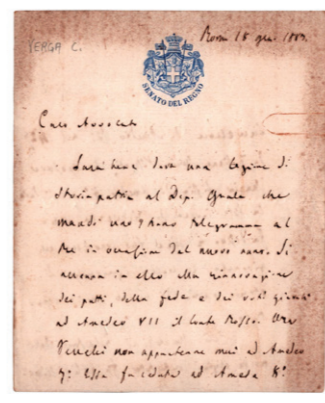 VERGA C.
Roma 18 gen. 1883.
SENATO DEL REGNO
Caro Avvocato
Sarà bene dare una lezione di
Storia patria al Dip. che
mandò uno strano telegramma al
Re in occasione del nuovo anno. Si
in ello alla rinnovazione
dei patti, della fede e dei voti giurati
ad Amedeo VII il Conte Rosso. Ora
non appartenne mai ad Amedeo
7º. Essa fu ceduta ad Amedeo